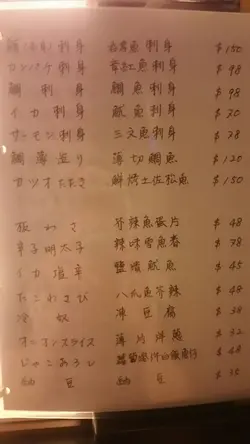 刺身 刺身 $ 150
カンパチ刺身 章紅魚刺身 $ 98
鯛 刺身 鯛魚刺身 $ 98
イカ刺身 魷魚刺身 $ 70
サーモン刺身 三文魚刺身 $ 78
鯛薄造り 薄切鯛魚 $ 120
カツオたたき 鮮烤土佐松魚 $ 150
板わさ 芥辣魚板片 $ 48
辛子明太子 辣味雪魚春 $ 78
イカ塩辛 鹽漬魷魚 $ 45
たこわさび 八爪魚芥辣 $ 48
冷奴 凍豆腐 $ 38
オニオンスライス 薄片洋葱 $ 32
じゃこおろし $ 48
納豆 納豆 $ 35